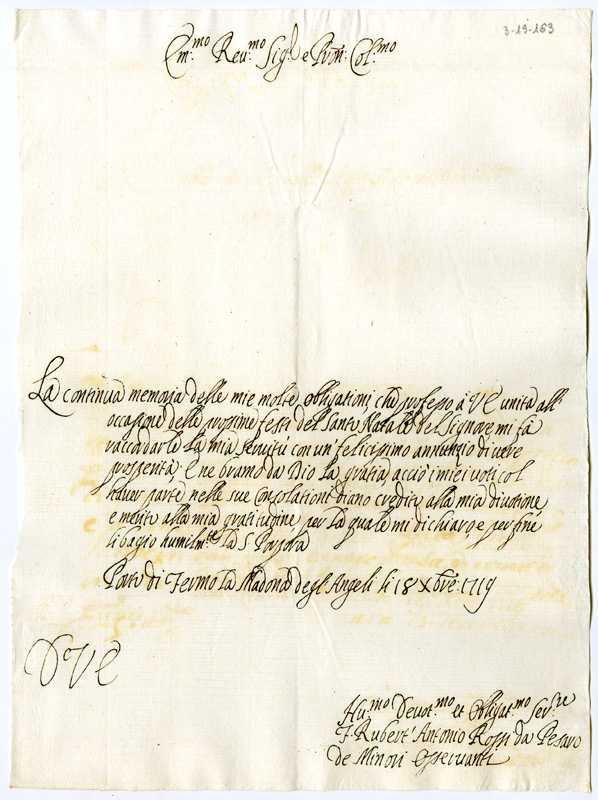 3-19-163
Em.mo Reu.mo Sig.r e Pron: Col.mo
La continua memoria delle mie molte obligationi, che professo à VE unita all'
occasione delle prossime feste del Santo Natale del Signore mi fà
raccordarle la mia seruitù con un' felicissimo annunzio di vere
prosperità. E ne bramo da Dio la gratia, acciò i miei voti col
hauer parte nelle sue Consolationi diano credito alla mia diuotione
e merito alla mia gratitudine per la quale mi dichiaro, e per fine
li bagio humilm.te la S. Porpora
Porto di Fermo la Madona degl'Angeli li 18 Xbre: 1719
D VE
Hu.mo Deuot.mo et Obligat.mo Ser.re
F. Rubert' Antonio Rossi da Pesaro
de Minori Osseruanti